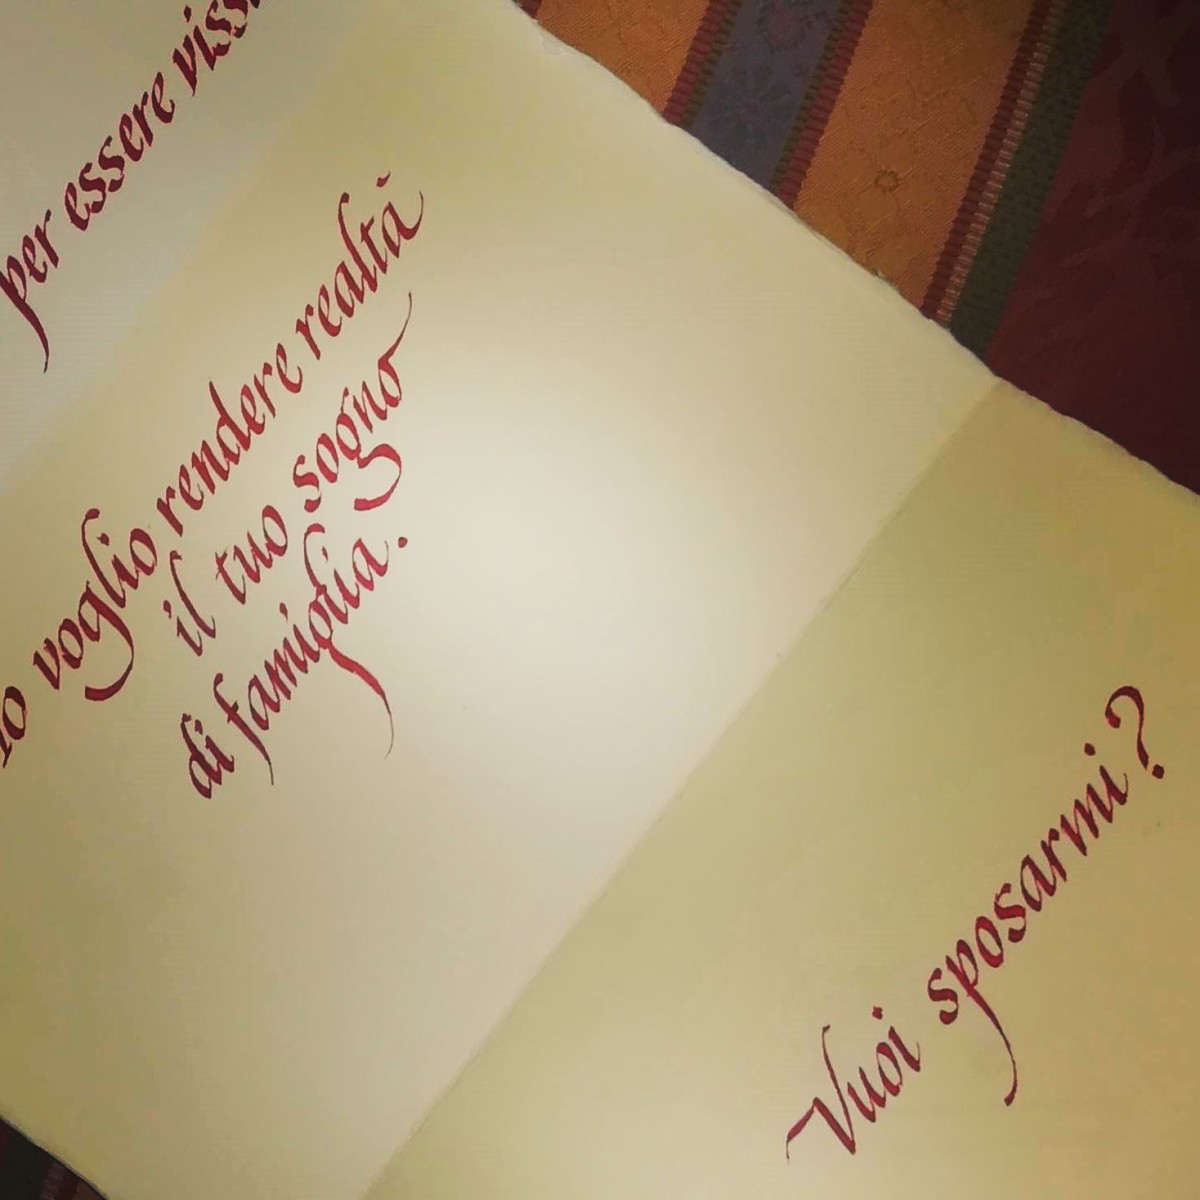 per essere
Io voglio rendere realtà
il tuo sogno
di famiglia.
Vuoi sposarmi?